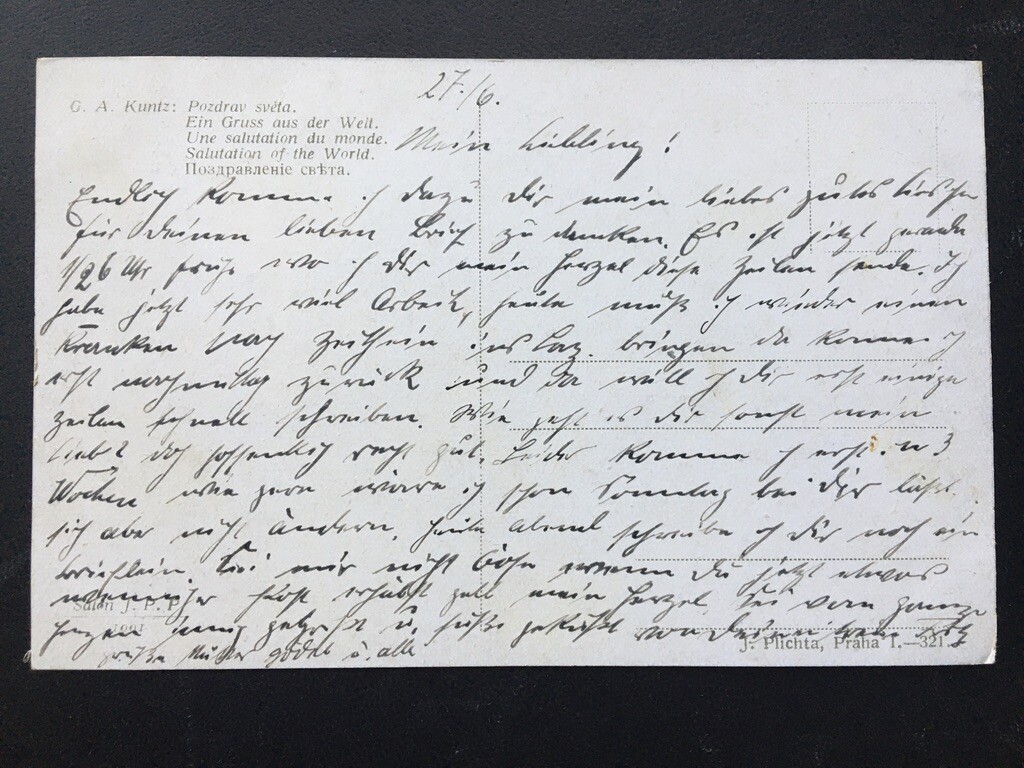 27./6.
G. A. Kuntz: Pozdrav světa.
Ein Gruss aus der Welt.
Une salutation du monde.
Salutation of the World.
Поздравленіе свѣта.
Mein Liebling!
Endlich komme ich dazu Dir mein liebes gutes
für Deinen lieben Brief zu danken. Es ist jetzt gerade
1/26 Uhr früh wo ich Dir mein Herzel diese Zeilen sende. Ich
habe jetzt sehr viel Arbeit, heute muß ich wieder einen
Kranken nach Zeithein ins Laz. bringen da komme ich
erst nachmittag zurück und da will ich Dir erst einige
Zeilen schnell schreiben. Wie geht es Dir sonst mein
Lieb? doch hoffentlich recht gut. Leider komme ich erst in 3
Wochen wie gern wäre ich schon Sonntag bei Dir läßt
sich aber nicht ändern. Heute abend schreibe ich Dir noch ein
Brieflein. Sei mir nicht böse wenn Du jetzt etwas
weniger Post erhälst mein Herzel. Sei vom ganzen
Herzen innig gegrüßt u. süß geküßt von Deinem
Grüße Mutter u. alle
Salon J. P. P.
J. Plichta, Praha I.—321.